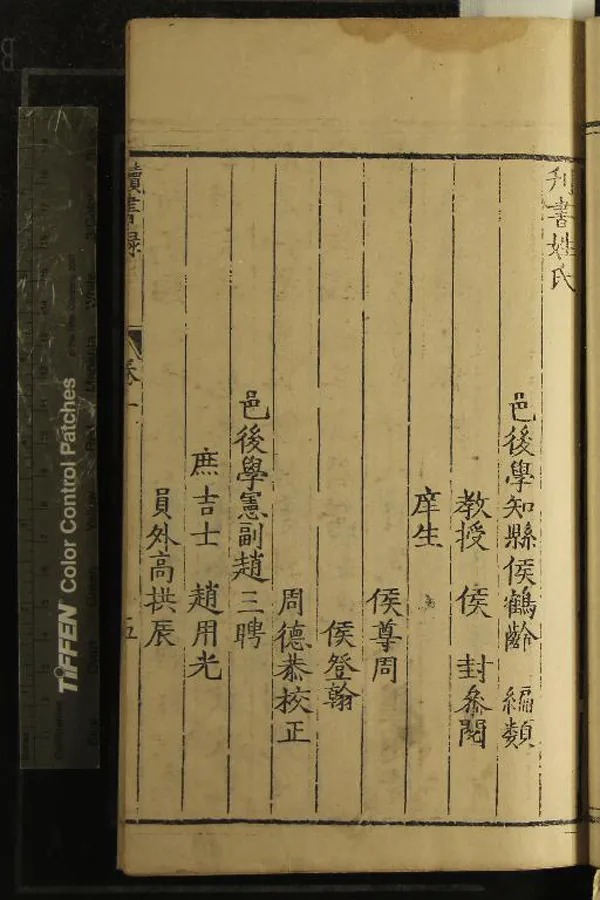 刋書姓氏
邑後學知縣侯鶴齡 編類
教授 侯 封叅閱
庠生
侯尊周
侯登翰
周德恭校正
邑後學憲副趙三聘
庶吉士 趙用光
員外高拱辰
讀書録 卷一 五
TIFFEN Color Control Patches